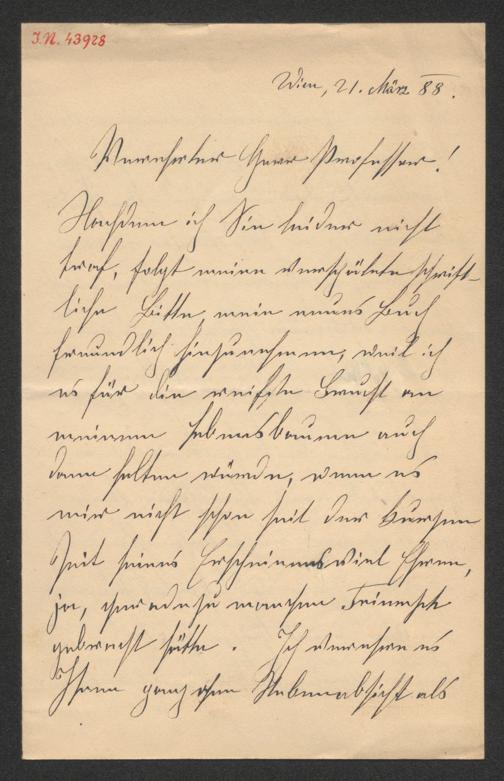 I.N. 43928
Wien, 21. März 88.
Verehrter Herr Professor!
Nachdem ich Sie leider nicht
traf, folgt meine verspätete schrift-
liche Bitte, mein neues Buch
freundlich hinzunehmen, weil ich
es für die reifste Frucht an
meinem Lebensbaume auch
dann halten würde, wenn es
mir nicht schon seit der kurzen
Zeit seines Erscheinens viel Ehren,
ja, geradezu manchen Triumph
gebracht hätte. Ich verehre es
Ihnen ganz ohne Nebenabsicht als